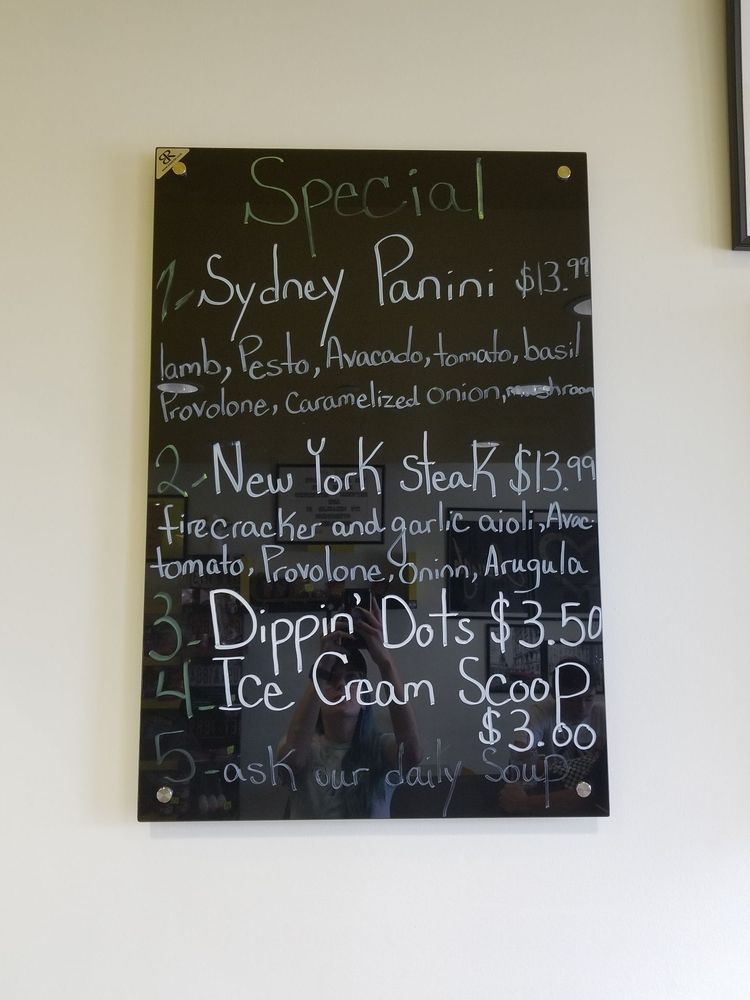 Special
1- Sydney Panini $13.99
lamb, Pesto, Avacado, tomato, basil
Provolone, Caramelized onion, mushroom
2- New York steak $13.99
firecracker and garlic aioli, Avac
tomato, Provolone, Oninn, Arugula
3- Dippin' Dots $3.50
4- Ice Cream Scoop
$3.00
5- ask our daily Soup